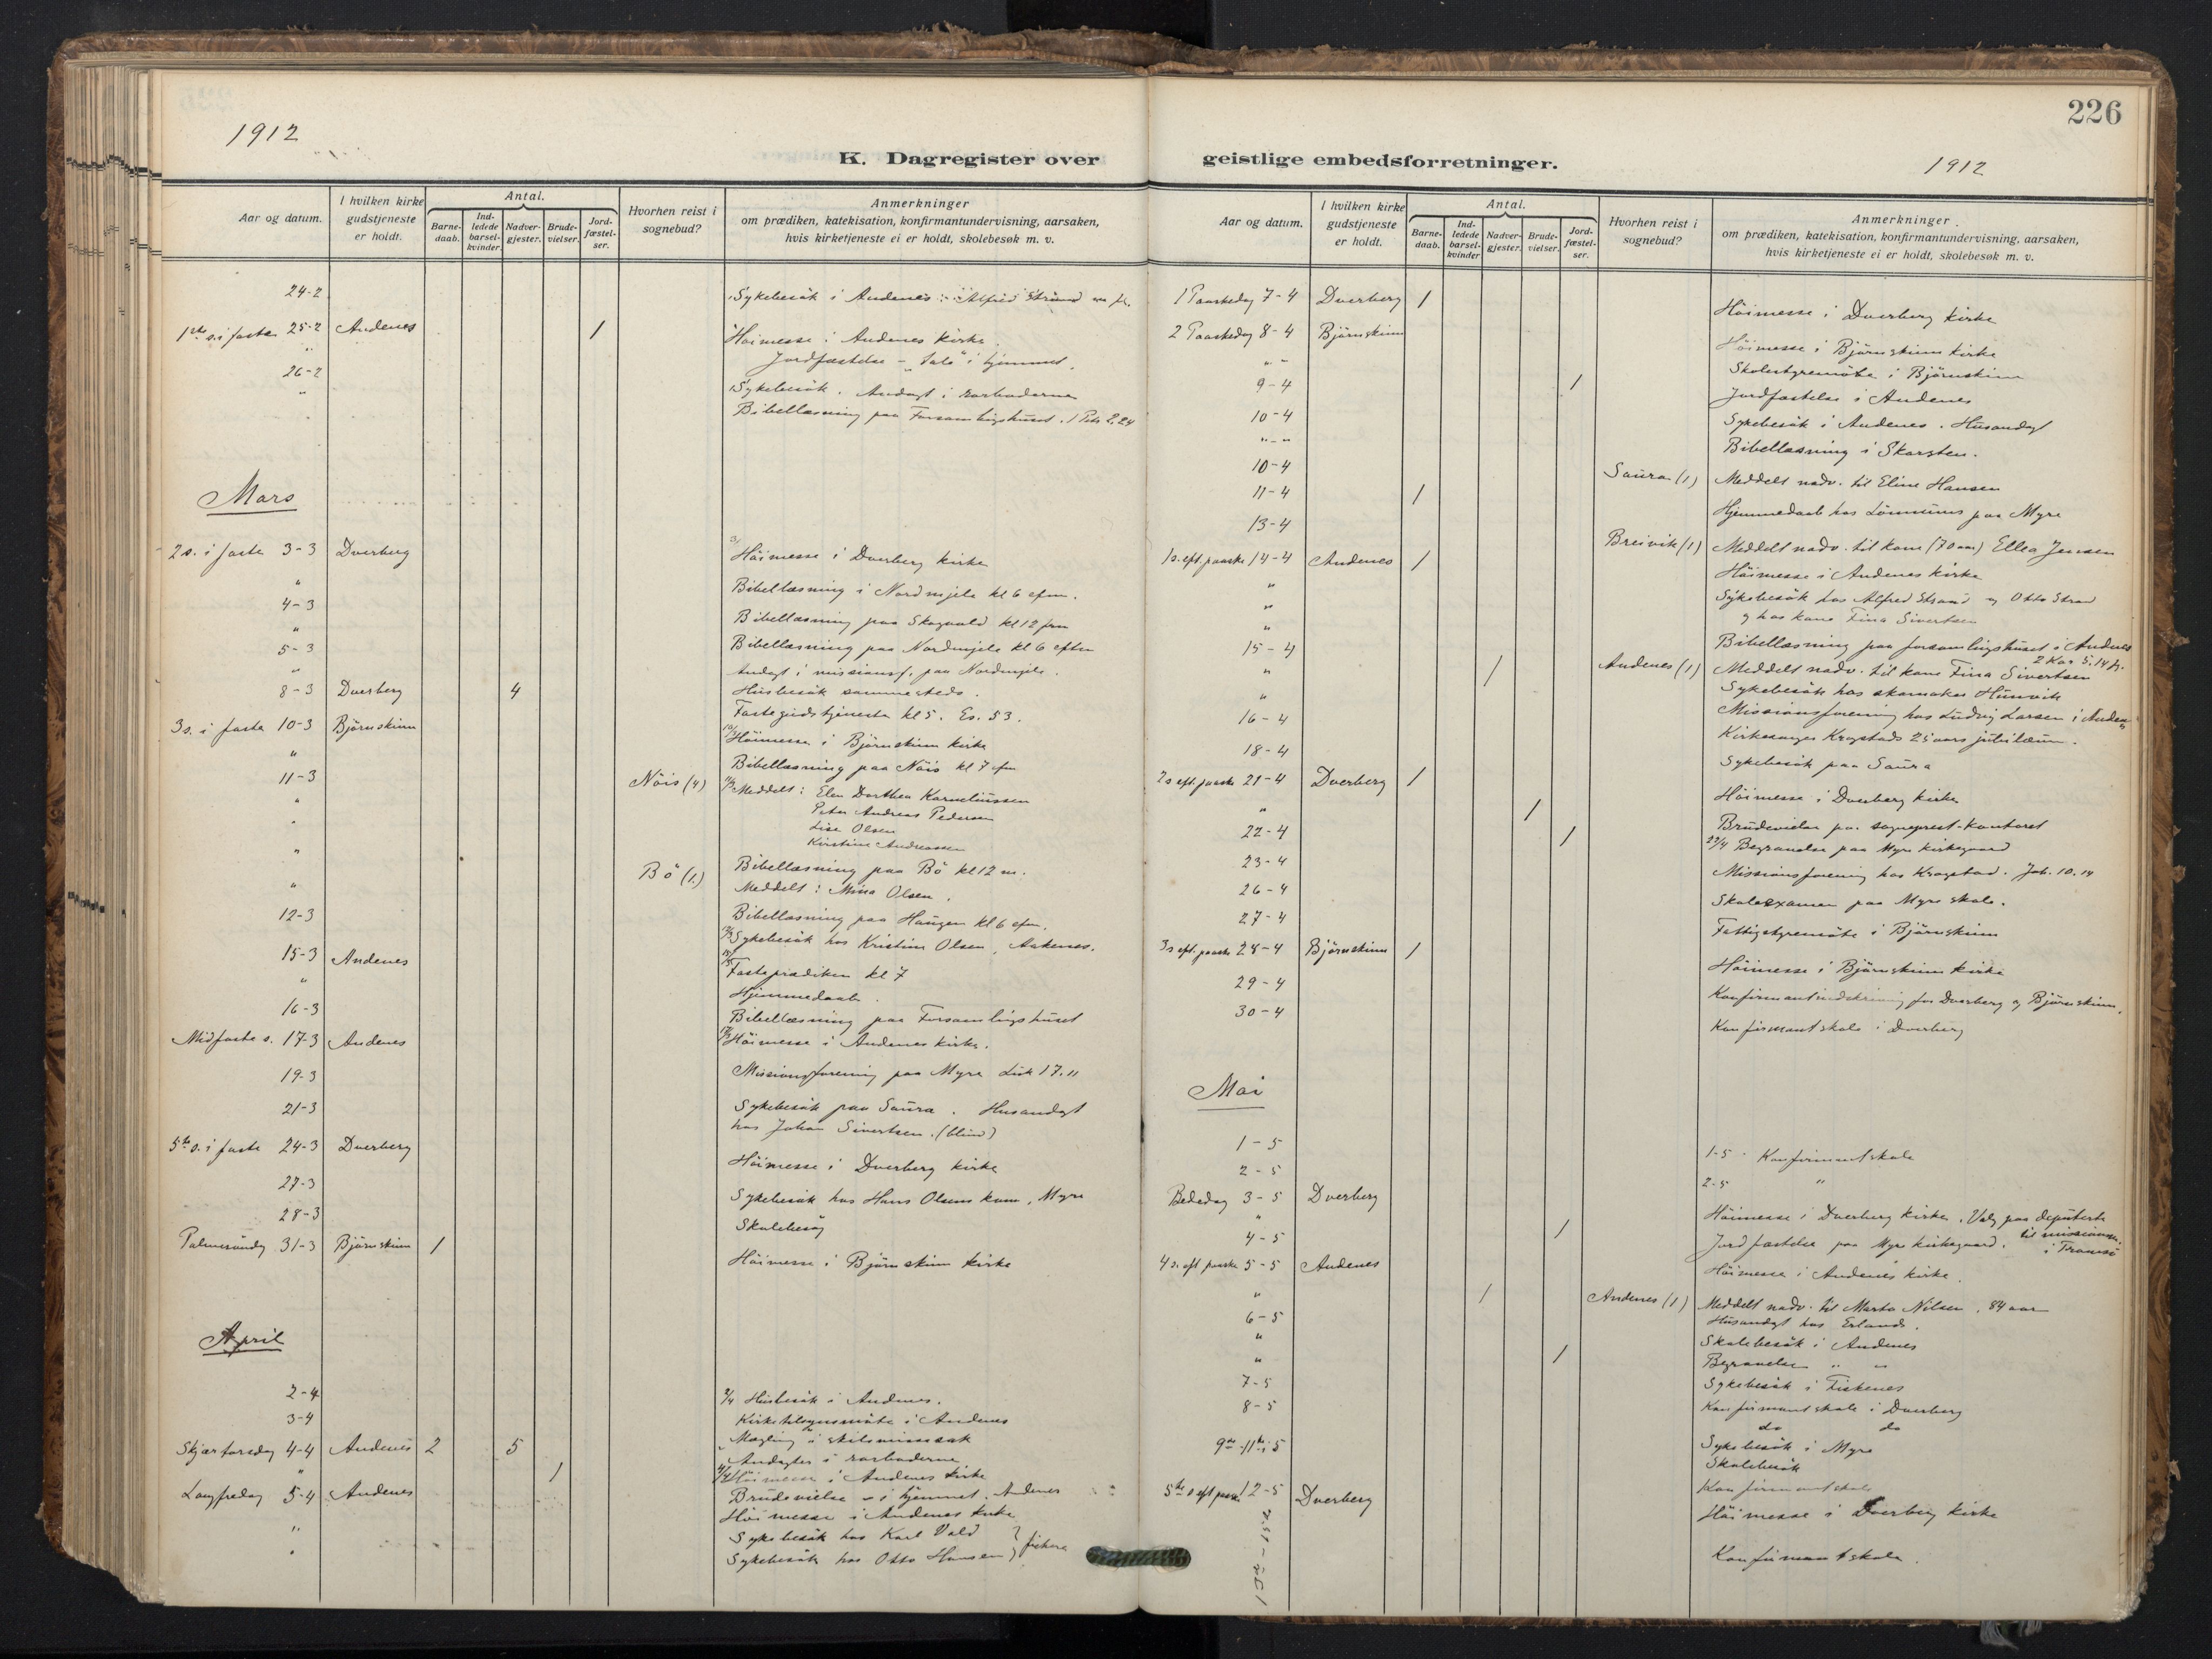 1912
K. Dagregister over
Aar og datum.
I hvilken kirke gudstjeneste er holdt.
Antal.
Barne-daab.
Ind-ledede barsel-kvinder
Nadver-gjester.
Brude-vielser.
Jord-fæstel-ser.
Hvorhen reist i sognebud?
Anmerkninger
om prædiken, katekisation, konfirmantundervisning, aarsaken,
hvis kirketjeneste ei er holdt, skolebesøk m. v.
24-2 Sykebesök i Andenes: Alfred Strand
1ste s. i faste 25-2 Andenes 1 Höimesse i Andenes kirke.
" Jordfæstelse - "tale" i hjemmet.
26-2 Sykebesök. Andagt i rorboderne
" Bibellæsning paa Forsamlingshuset. 1 Pet. 2,24
Mars
2 s. i faste 3-3 Dverberg Höimesse i Dverberg kirke
" Bibellæsning i Nordmjele kl 6 efm.
4-3 Bibellæsning paa Skogvold kl 12 fm
" Bibellæsning paa Nordmjele kl 6 eftm
5-3 Andagt i missionsf. paa Nordmjele.
" Husbesök sammesteds.
8-3 Dverberg 4 Fastegudstjeneste kl 5. Es. 53.
3 s. i faste 10-3 Björnskinn Höimesse i Björnskinn kirke
" Bibellæsning paa Nöis kl 7 efm
11-3 Nöis (4) Meddelt: Elen Dorthea Korneliussen
" Peter Andreas Pedersen
" Lise Olsen
Kirstine Andreassen
" Bibellæsning paa Bö kl 12 m.
Bö (1.) Meddelt: Mina Olsen.
" Bibellæsning paa Haugen kl 6 efm.
12-3 Sykebesök hos Kristine Olsen, Aaknes.
15-3 Andenes Fasteprædiken kl 7
" Hjemmedaab.
16-3 Bibellæsning paa Forsamlingshuset
Midfaste s. 17-3 Andenes Höimesse i Andenes kirke.
19-3 Missionsforening paa Myre Luk 17.11
21-3 Sykebesök paa Saura. Husandagt
hos Johan Sivertsen. (blind)
5te s. i faste 24-3 Dverberg Höimesse i Dverberg kirke
27-3 Sykebesök hos Hans Olsens kone, Myre
28-3 Skolebesög
Palmesöndag 31-3 Björnskinn 1 Höimesse i Björnskinn kirke
April
2-4 2/4 Husbesök i Andenes.
3-4 Kirketilsynsmöte i Andenes
" Mægling i skilsmissesak
" Andagter i rorboderne
Skjærtorsdag 4-4 Andenes 2 5 Höimesse i Andenes kirke
" 1 Brudevielse - i hjemmet. Andenes
Langfredag 5-4 Andenes Höimesse i Andenes kirke
" Sykebesök hos Karl Vold
" Sykebesök hos Otto Hansen } fiskere
226
1912
geistlige embedsforretninger.
Aar og datum.
I hvilken kirke gudstjeneste er holdt.
Antal.
Barne-daab.
Ind-ledede barsel-kvinder
Nadver-gjester.
Brude-vielser.
Jord-fæstel-ser.
Hvorhen reist i sognebud?
Anmerkninger
om prædiken, katekisation, konfirmantundervisning, aarsaken,
hvis kirketjeneste ei er holdt, skolebesøk m. v.
1 Paaskedag 7-4 Dverberg 1 Höimesse i Dverberg kirke
2 Paaskedag 8-4 Björnskinn Höimesse i Björnskinn kirke
" " Skolestyremöte i Björnskinn
9-4 1 Jordfæstelse i Andenes
10-4 Sykebesök i Andenes. Husandagt
" - " Bibellæsning i Skarsten.
10-4 Saura (1) Meddelt nadv. til Eline Hansen
11-4 1 Hjemmedaab hos Lönnums paa Myre
13-4 Breivik (1) Meddelt nadv. til kone (70 aar) Ellea Jensen
1 s. eft. paaske 14-4 Andenes 1 Höimesse i Andenes kirke
" Sykebesök hos Alfred Strand og Otto Strand
" og hos kone Fina Sivertsen
" Bibellæsning paa forsamlingshuset i Andenes
2 Kor 5.14 ff.
15-4 1 Andenes (1) Meddelt nadv. til kone Fina Sivertsen
" Sykebesök hos skomaker Hunvik
" Missionsforening hos Ludvig Larsen i Andenes
16-4 Kirkesanger Krogstads 25 aars jubilæum.
18-4 Sykebesök paa Saura
2 s eft. paaske 21-4 Dverberg 1 Höimesse i Dverberg kirke
" 1 Brudevielse paa sogneprest-kontoret
22-4 1 22/4 Begravelse paa Myre kirkegaard
23-4 Missionsforening hos Krogstad. Joh. 10.14
26-4 Skoleexamen paa Myre skole.
27-4 Fattigstyremöte i Björnskinn
3 s eft. paaske 28-4 Björnskinn 1 Höimesse i Björnskinn kirke
29-4 Konfirmantindskrivning for Dverberg og Björnskinn.
30-4 Konfirmantskole i Dverberg
Mai
1-5 1-5 Konfirmantskole
2-5 2-5 "
Bededag 3-5 Dverberg Höimesse i Dverberg kirke. Valg paa deputerte
til missionsm.
i Tromsö
"
4-5 1 Jordfæstelse paa Myre kirkegaard.
4 s. eft paaske 5-5 Andenes Höimesse i Andenes kirke.
" 1 Andenes (1) Meddelt nadv. til Marta Nilsen, 84 aar
Husandagt hos Erlands.
6-5 Skolebesök i Andenes
" 1 Begravelse " "
" Sykebesök i Fiskenes
7-5 Konfirmantskole i Dverberg
8-5 do do
Sykebesök i Myre
Skolebesök
9de-11te-5 Konfirmantskole
5te s eft paaske 12-5 Dverberg Höimesse i Dverberg kirke
Konfirmantskole.